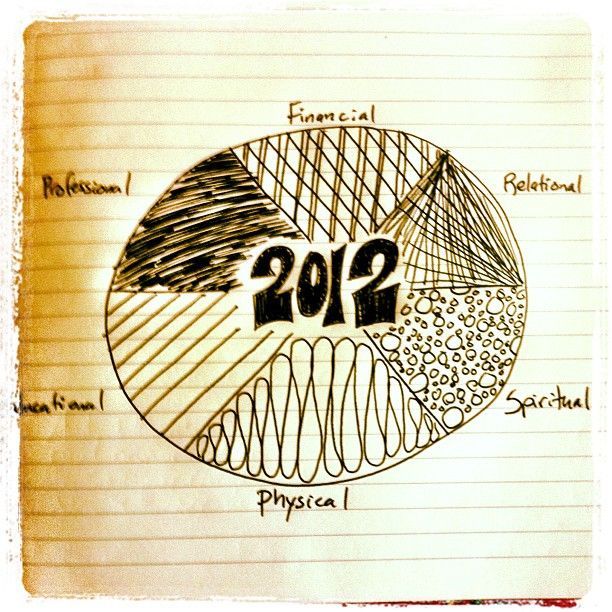 Financial
Professional
Relational
2012
Spiritual
Physical